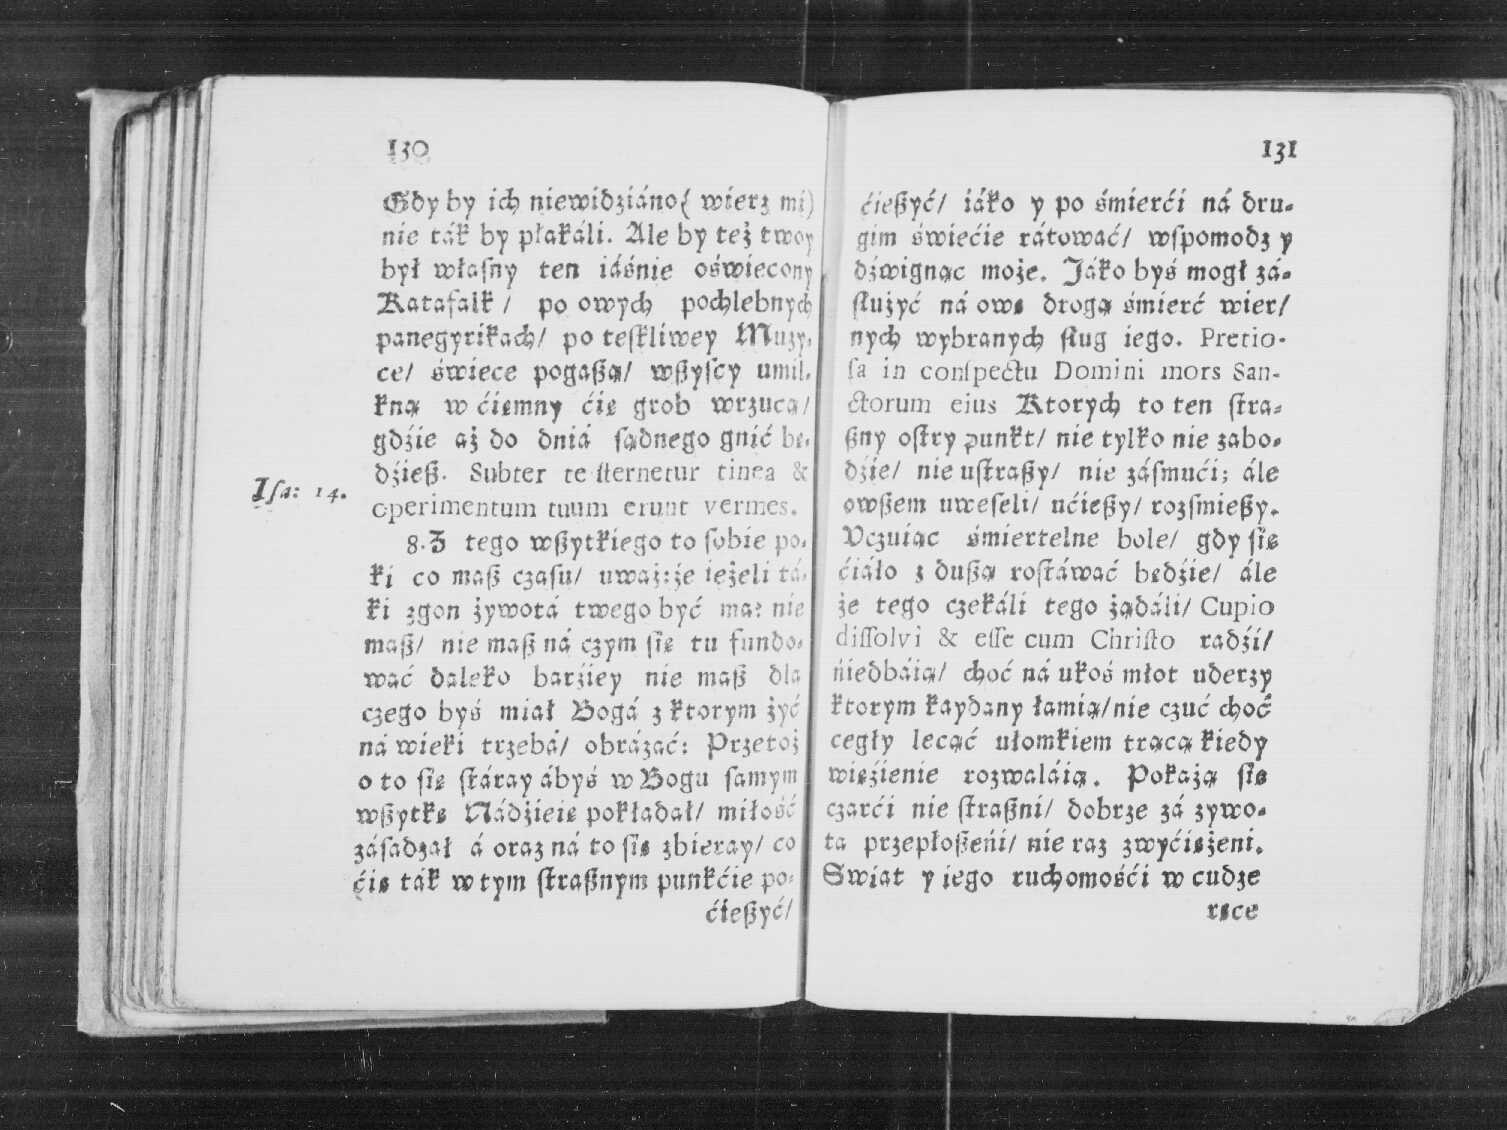 130
Gdy by ich niewidziáno( wierz mi)
nie ták by płakáli. Ale by też twoy
był własny ten iáśnie oświecony
Katafalk / po owych pochlebnych
panegyrikach/ po teskliwey Muzy-
ce/ świece pogaszą/ wszyscy umil-
kną w ćiemny ćię grob wrzucą/
gdźie aż do dniá sądnego gnić bę-
dźiesz. Subter te sternetur tinea &
operimentum tuum erunt vermes.
Isa: 14.
8. Z tego wszytkiego to sobie po-
ki co masz czasu/ uważ: że ieżeli tá-
ki zgon żywotá twego być ma: nie
masz/ nie masz ná czym się tu fundo-
wać daleko barźiey nie masz dla
czego byś miał Bogá z ktorym żyć
ná wieki trzebá/ obrázać: Przetoż
o to się stáray ábyś w Bogu samym
wszytkę Nádźieię pokładał/ miłość
zásadzał á oraz ná to się zbieray/ co
ćię ták w tym strasznym punkćie po-
ćieszyć/
131
ćieszyć/ iáko y po śmierći ná dru-
gim świećie rátować/ wspomodz y
dźwignąc może. Jáko byś mogł zá-
służyć ná owę drogą śmierć wier/
nych wybranych sług iego. Pretio-
sa in conspectu Domini mors San-
ctorum eius Ktorych to ten stra-
szny ostry punkt/ nie tylko nie zabo-
dźie/ nie ustraszy/ nie zásmući; ále
owszem uweseli/ ućieszy/ rozsmieszy.
Uczuiąc śmiertelne bole/ gdy się
ćiáło z duszą rostáwać będźie/ ále
że tego czekáli tego żądáli/ Cupio
dissolvi & esse cum Christo radźi/
niedbáią/ choć ná ukoś młot uderzy
ktorym kaydany łamią/nie czuć choć
cegły lecąć ułomkiem trącą kiedy
więźienie rozwaláią. Pokażą się
czarći nie straszni/ dobrze zá zywo-
ta przepłoszeńi/ nie raz zwyćiężeni.
Swiat y iego ruchomośći w cudze
ręce